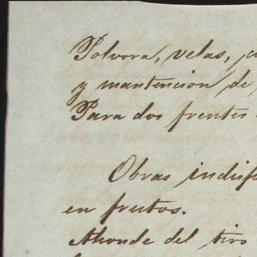 Polvora, velas,
y mantencion de
Para dos frentes
Obras
en frutos.
Ahonde del tiro